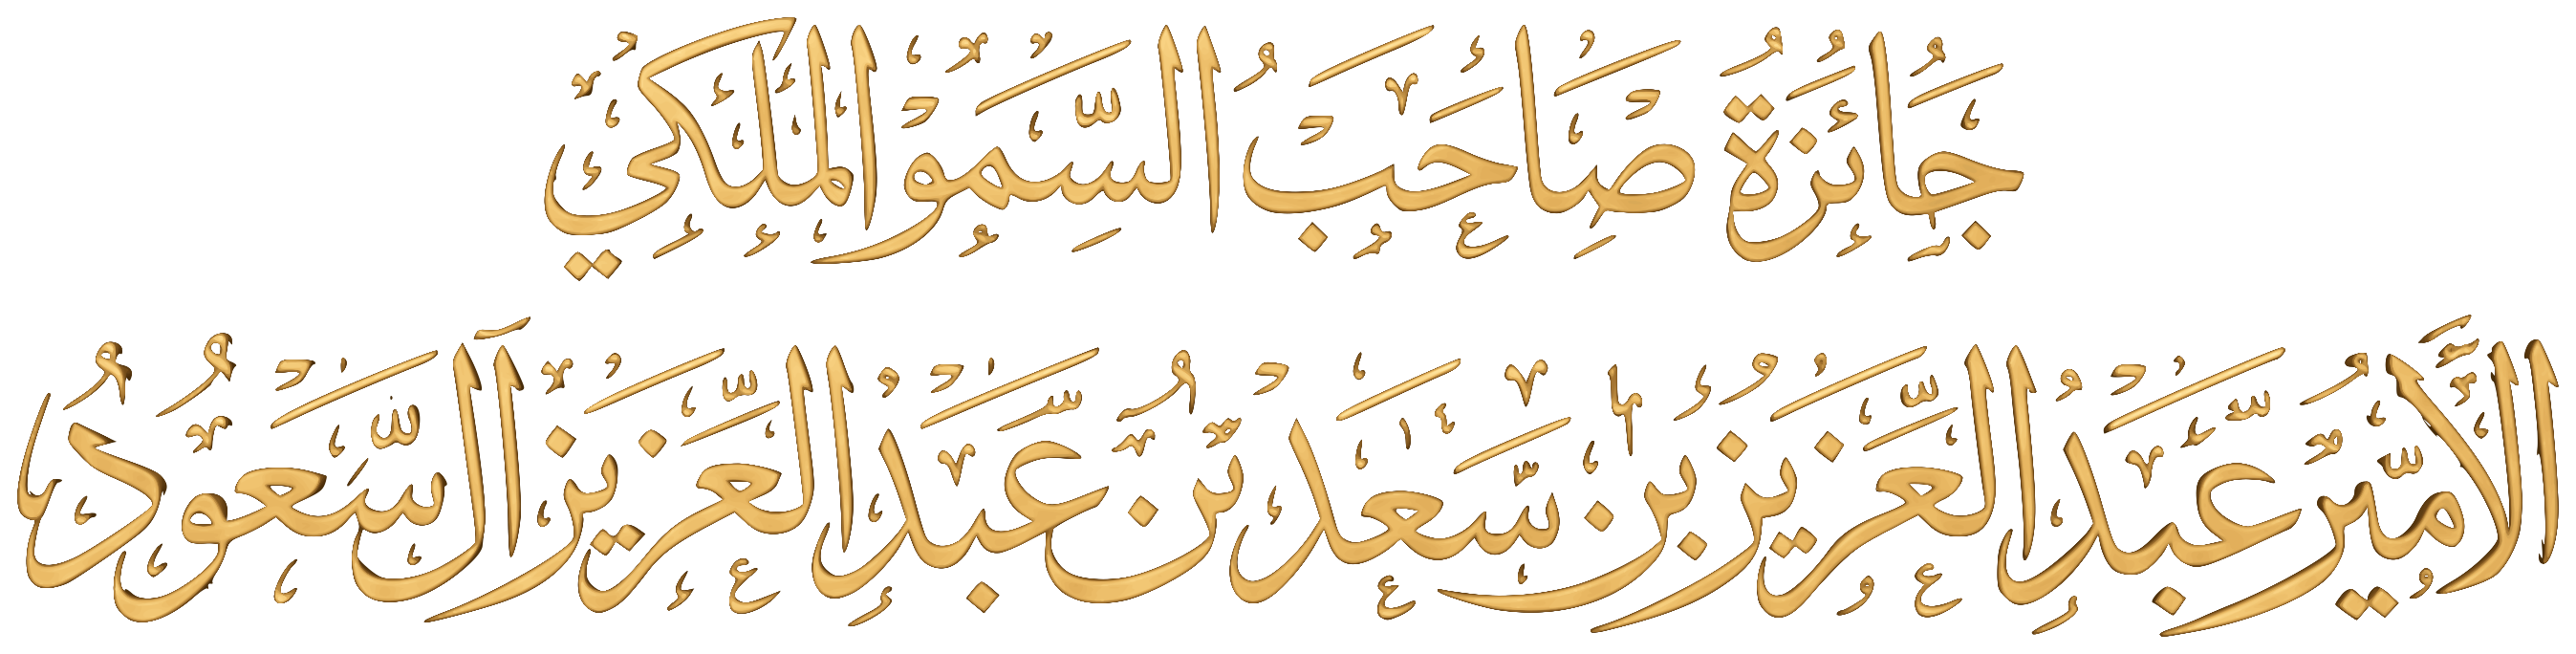 جائزة صاحب السمو الملكي
الأمير عبد العزيز بن سعد بن عبد العزيز آل سعود